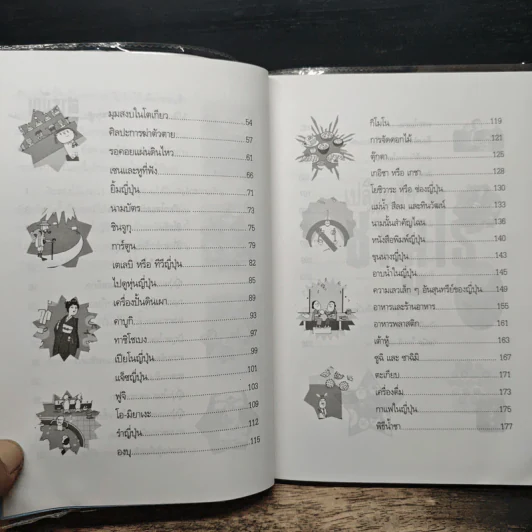 มุมสงบในโตเกียว 54
ศิลปะการฆ่าตัวตาย 57
รอคอยแผ่นดินไหว 61
เซนและหูที่ฟัง 66
ยิ้มญี่ปุ่น 71
นามบัตร 73
ชินจูกุ 75
การ์ตูน 79
เตเลบิ หรือ ทีวีญี่ปุ่น 82
ไปดูหุ่นญี่ปุ่น 85
เครื่องปั้นดินเผา 89
คาบูกิ 93
ทาชิโชเบง 97
เบียในญี่ปุ่น 99
แจ๊ซญี่ปุ่น 101
ฟูจิ 103
โอ-มิยาเงะ 109
รำญี่ปุ่น 112
องบุ 115
กิโมโน 119
การจัดดอกไม้ 121
ตุ๊กตา 125
เกอิชา หรือ เกชา 128
โยชิวาระ หรือ ซ่องญี่ปุ่น 130
แม่น้ำ ลือเม และหินวัฒน์ 133
นามนั้นสำคัญไฉน 136
หนังสือพิมพ์ญี่ปุ่น 140
ขุนนางญี่ปุ่น 143
อาบน้ำในญี่ปุ่น 145
ความเลวเล็ก ๆ อันสุนทรีย์ของญี่ปุ่น 149
อาหารและร้านอาหาร 155
อาหารพลาสติก 161
เต้าหู้ 163
ซูชิ และ ซาฉิมิ 167
ตะเกียบ 171
เครื่องดื่ม 173
กาแฟในญี่ปุ่น 175
พิธีน้ำชา 177